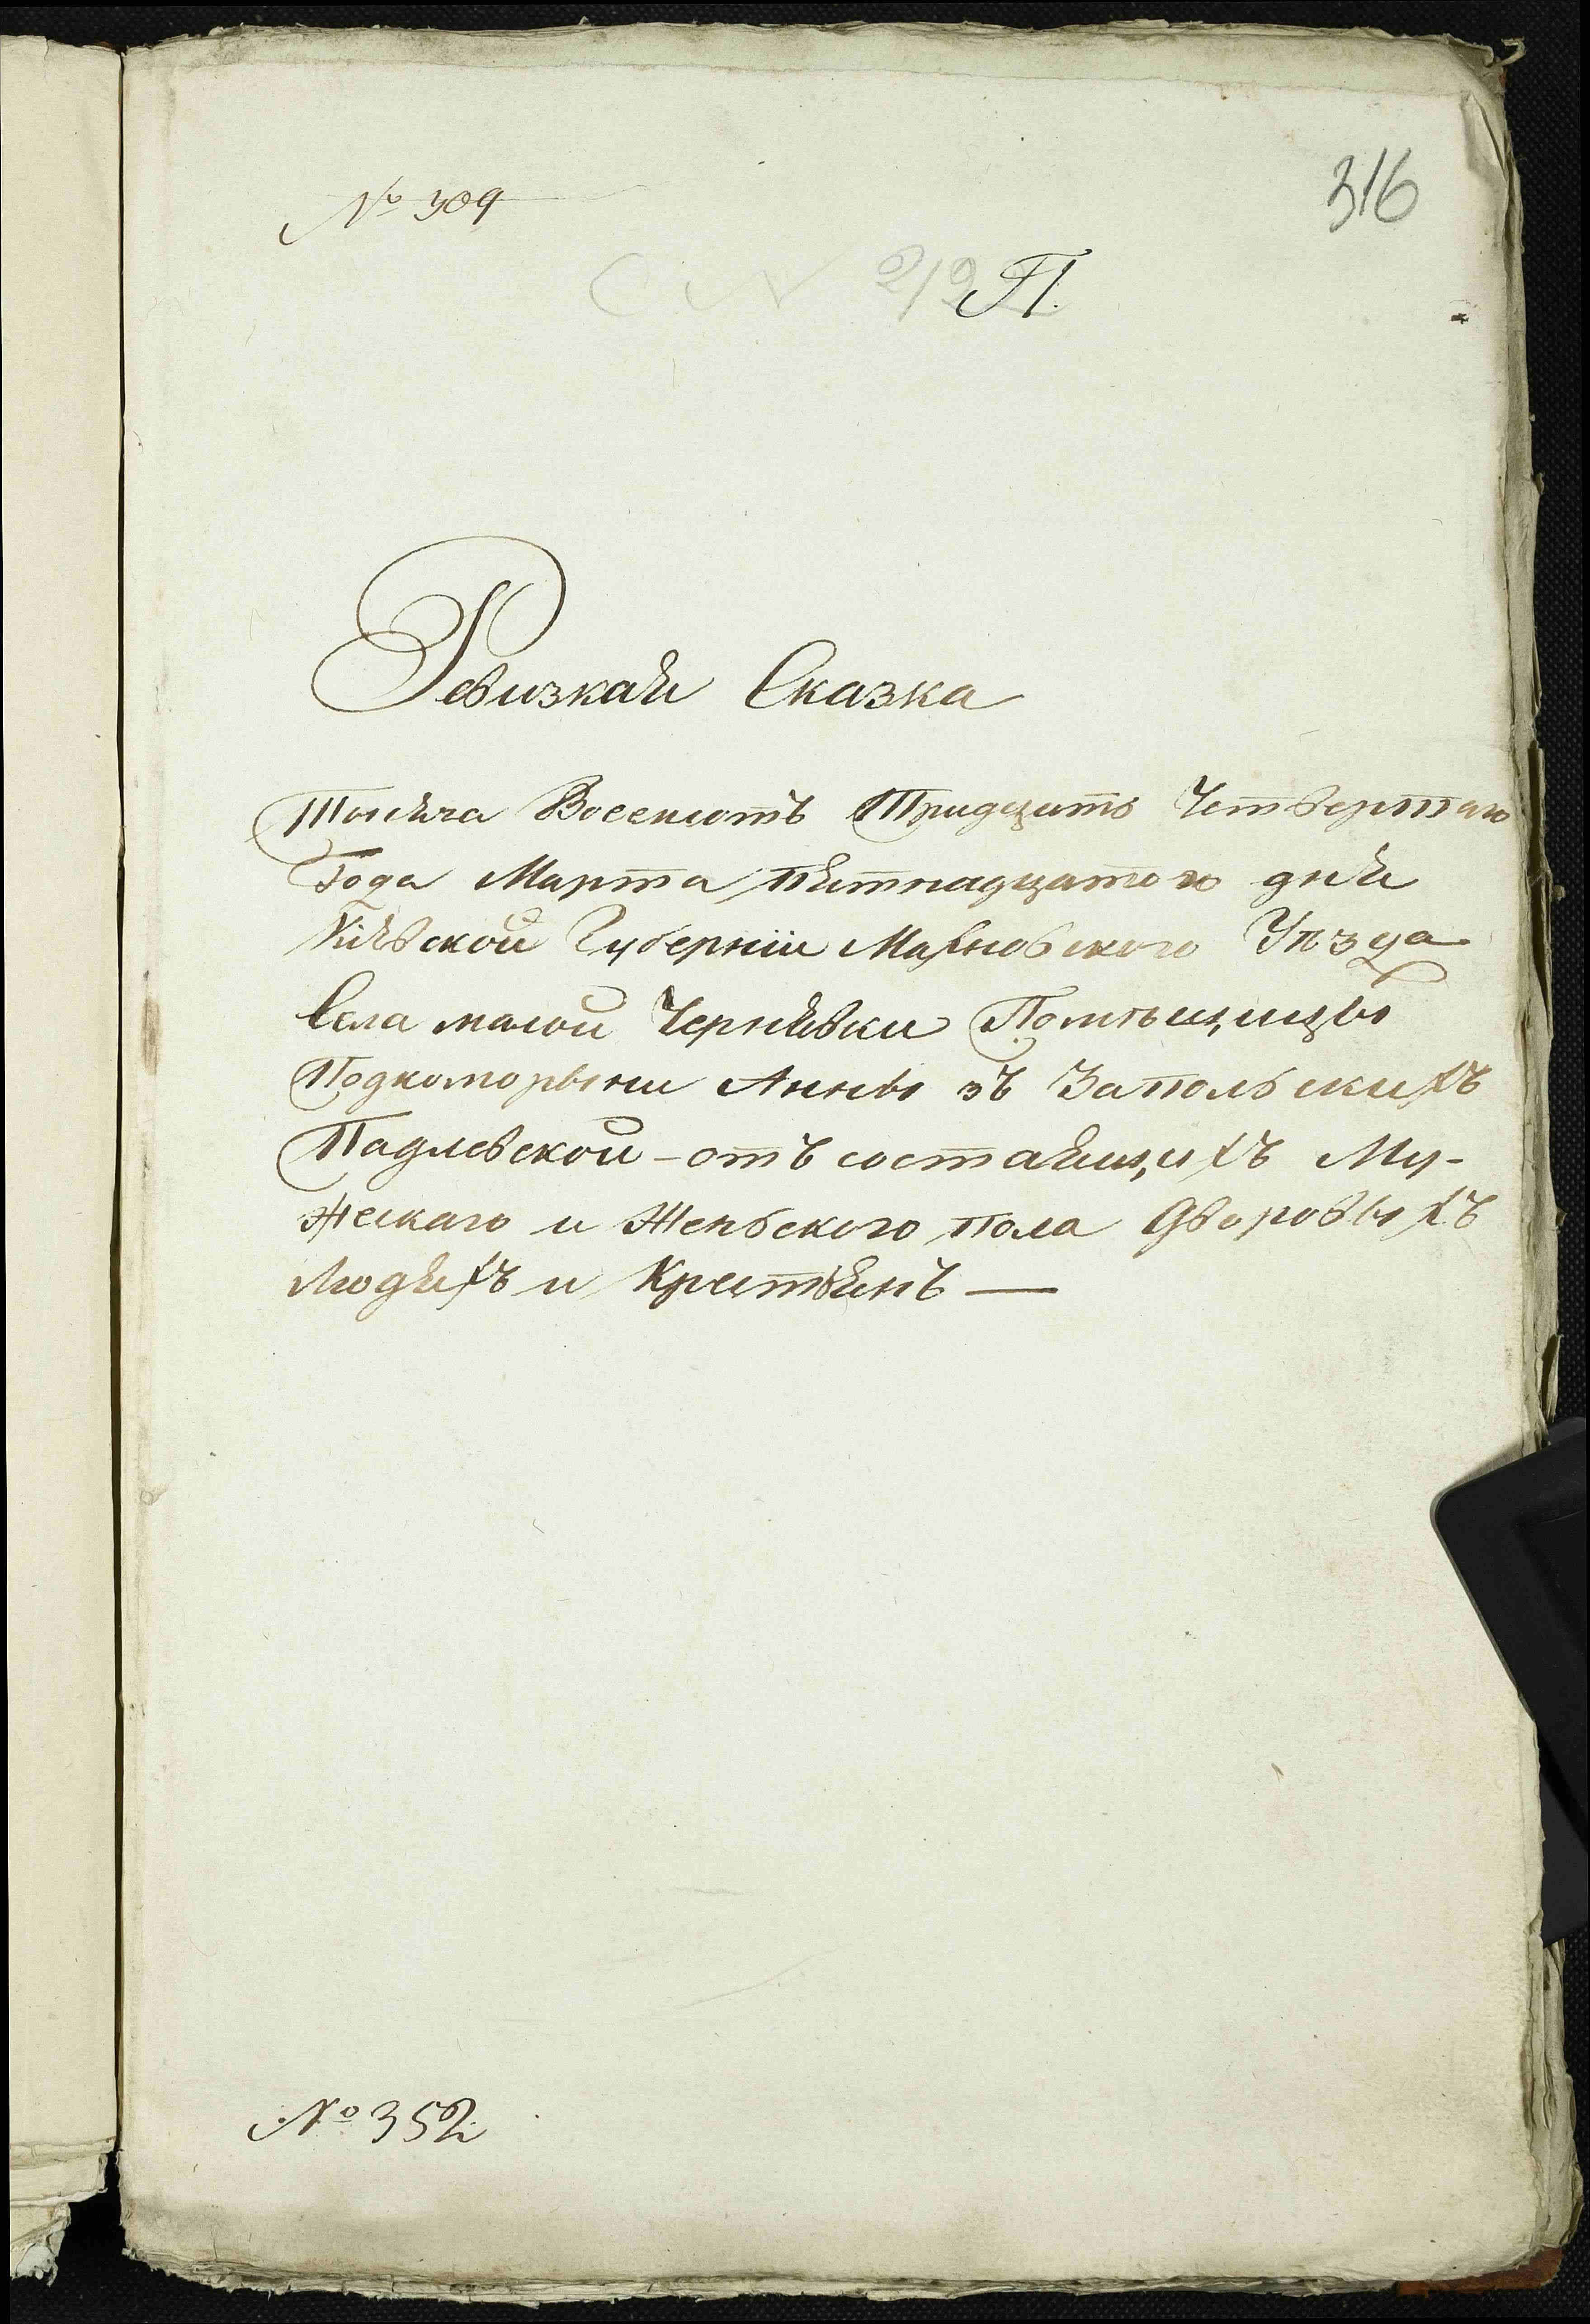 № 309
316
212 П.
Ревизкая Сказка
Тысяча Восемсотъ Тридцать Четвертаго
Года Марта пятнадцатого дня
Кіевской Губерніи Махновского Уѣзда
Села малой Чернявки Помѣщицы
Подкоморыни Анны зъ Запольскихъ
Падлевской - отъ состаящихъ Му-
жескаго и Женьского пола Дворовыхъ
Людяхъ и Крестьянъ —
№ 352